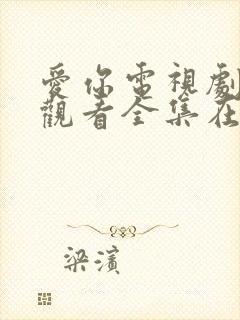 愛你電視劇
觀看全集在
梁濱